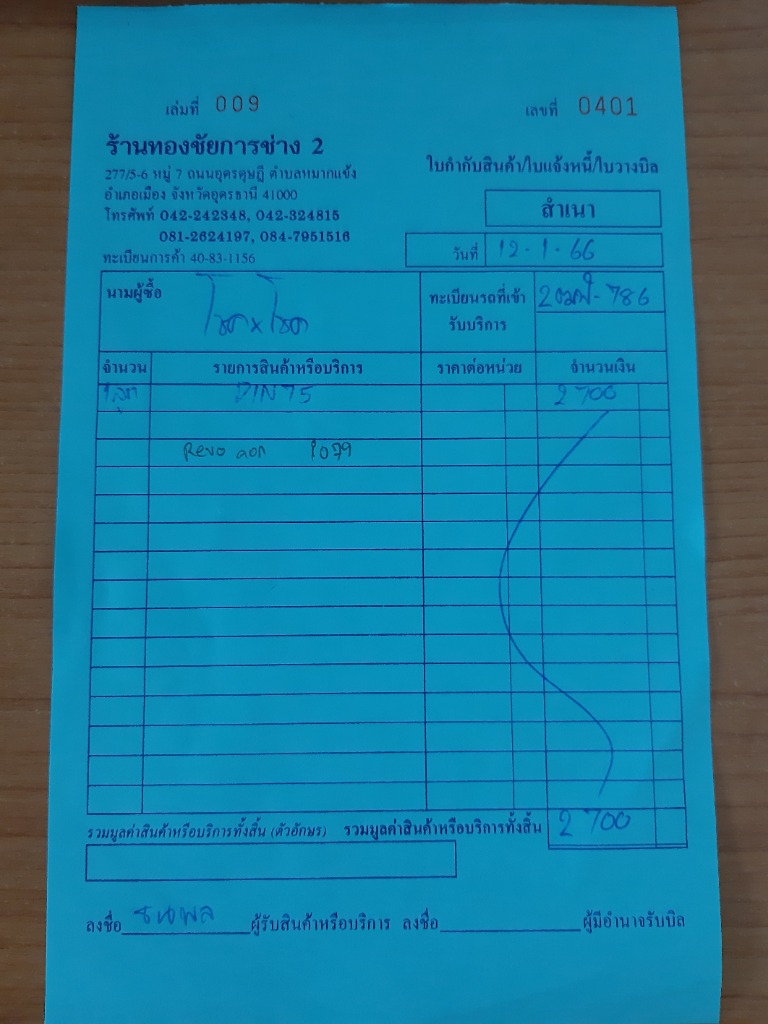 เล่มที่ 009 เลขที่ 0401
ร้านทองชัยการช่าง 2
277/5-6 หมู่ 7 ถนนอุดรดุษฎี ตำบลหมากแข้ง
อำเภอเมือง จังหวัดอุดรธานี 41000
โทรศัพท์ 042-242348, 042-324815
081-2624197, 084-7951516
ทะเบียนการค้า 40-83-1156
ใบกำกับสินค้า/ใบแจ้งหนี้/ใบวางบิล
สำเนา
วันที่ 12-1-66
นามผู้ซื้อ
ทะเบียนรถที่เข้ารับบริการ 786
จำนวน รายการสินค้าหรือบริการ ราคาต่อหน่วย จำนวนเงิน
1 ลูก DIN 75 2700
Revo 1079
รวมมูลค่าสินค้าหรือบริการทั้งสิ้น (ตัวอักษร) รวมมูลค่าสินค้าหรือบริการทั้งสิ้น 2700
ลงชื่อ ผู้รับสินค้าหรือบริการ ลงชื่อ ผู้มีอำนาจรับบิล